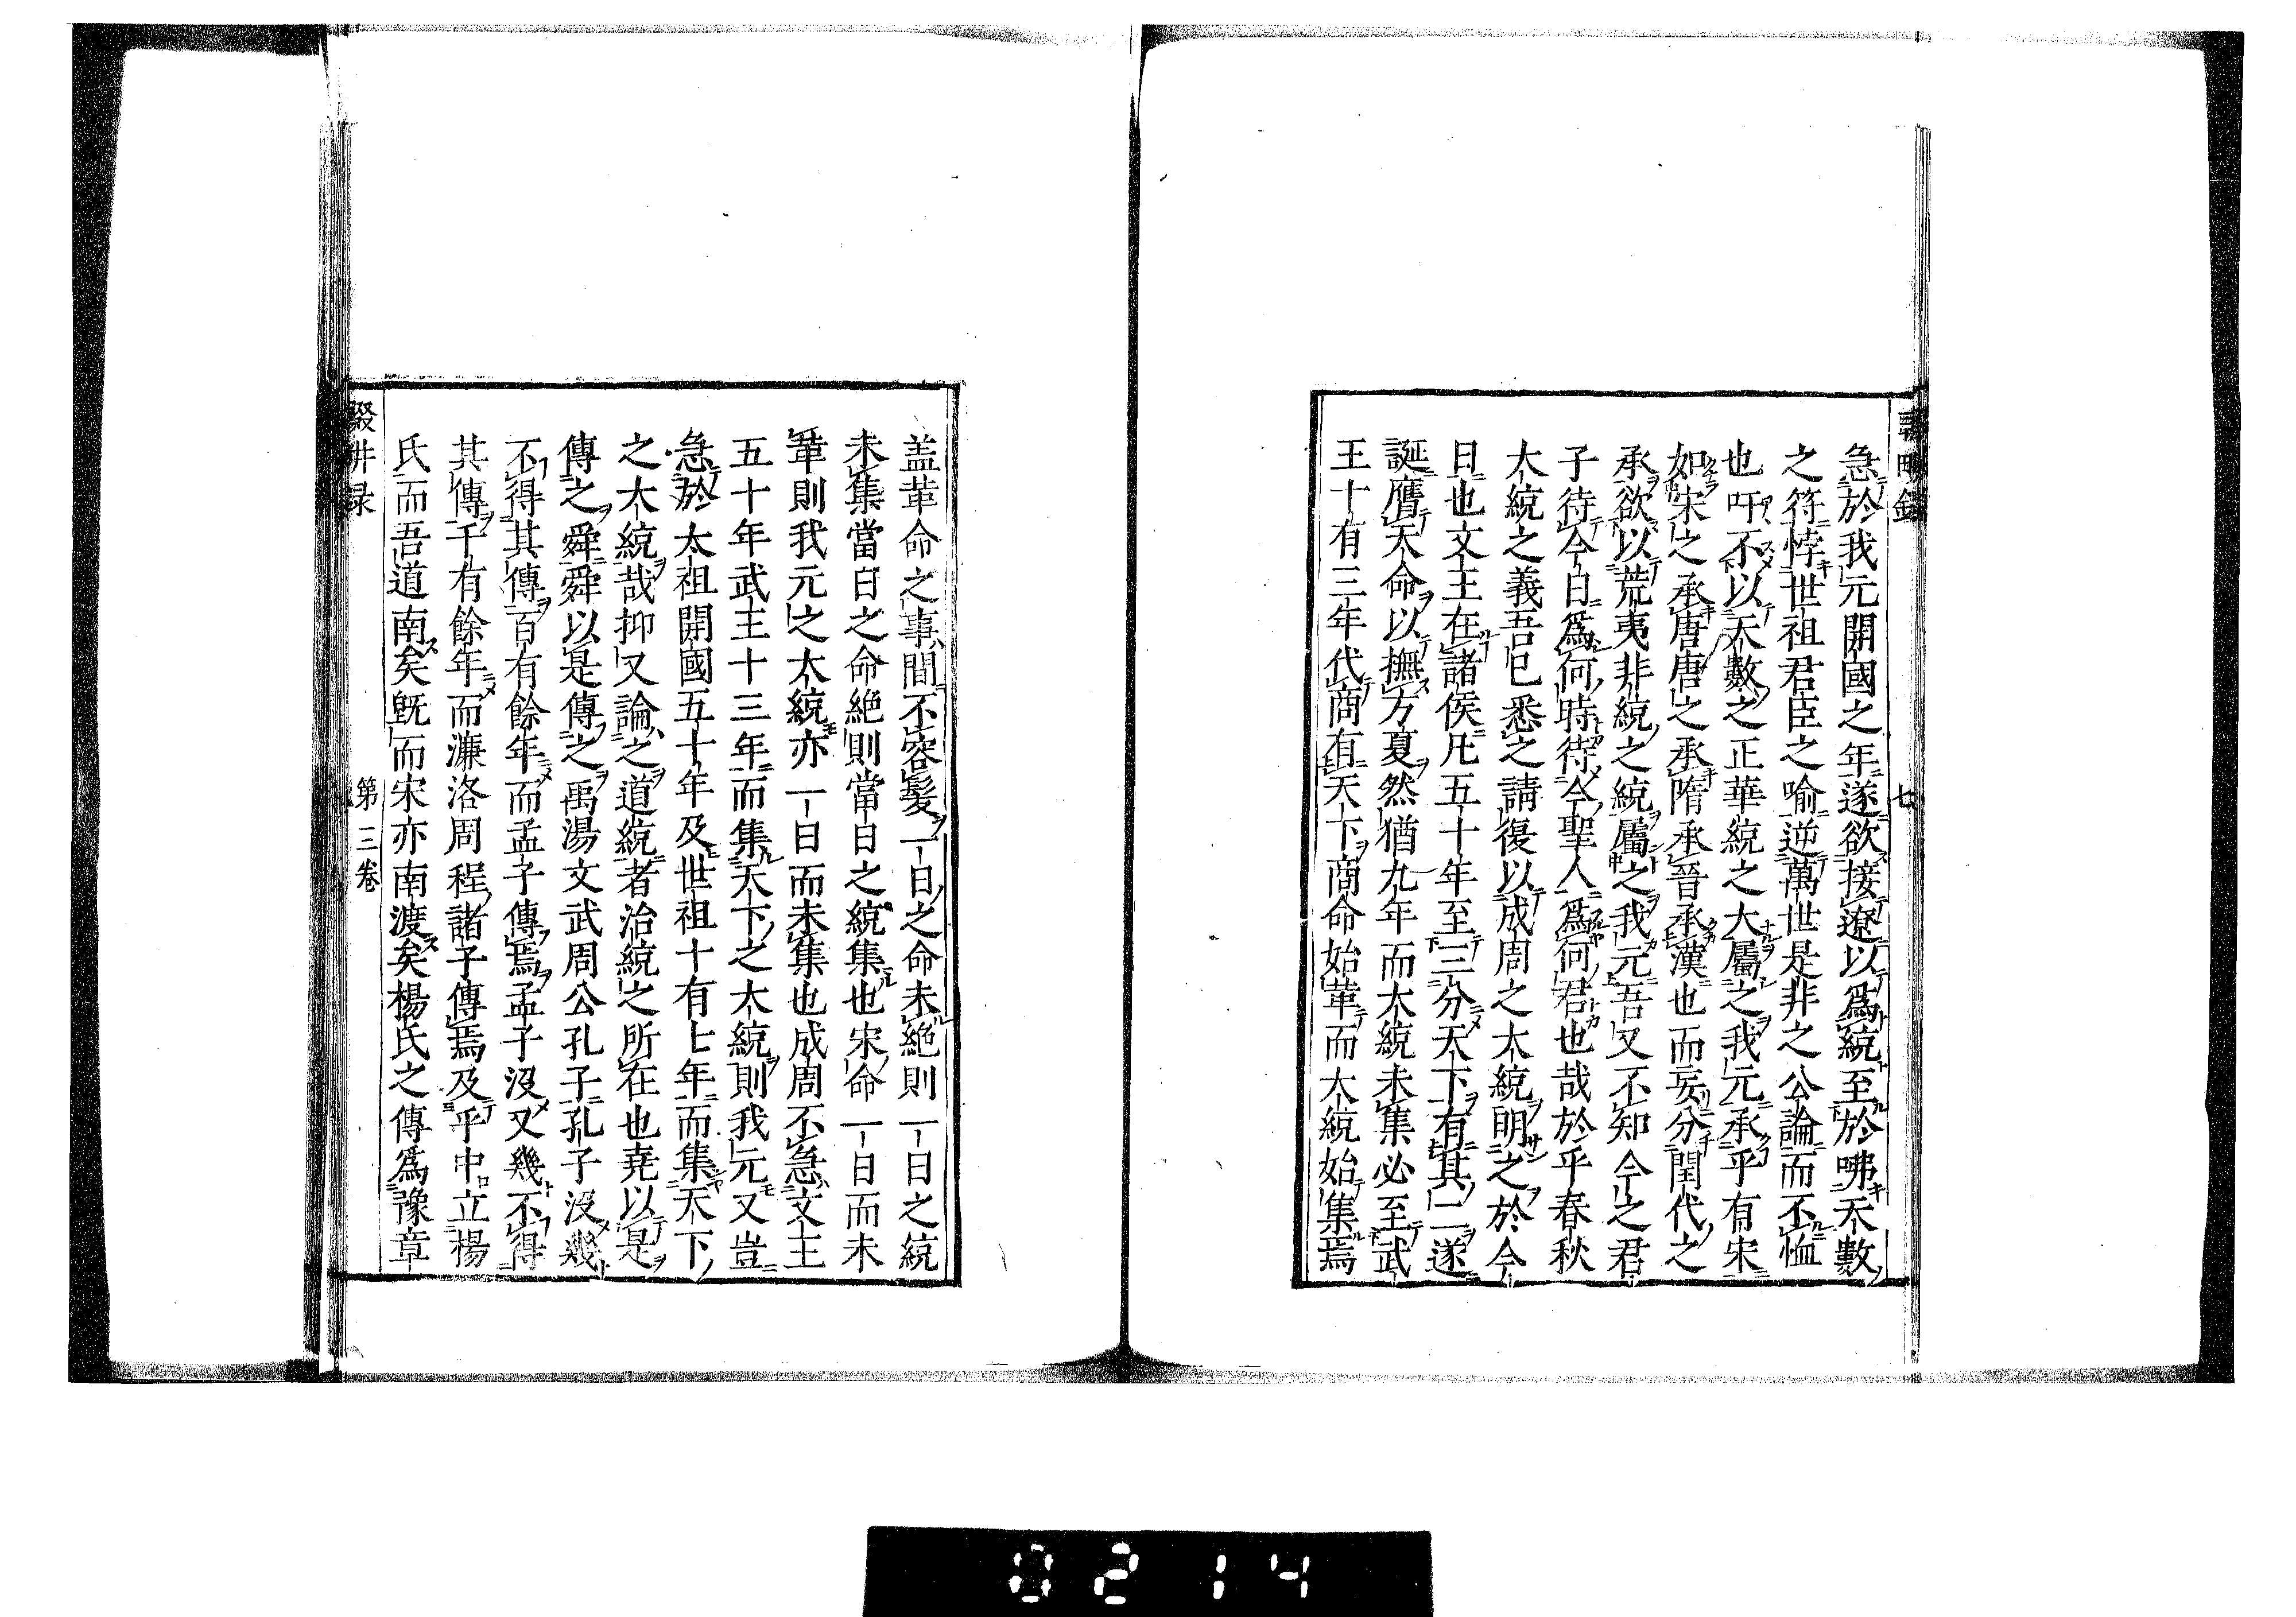 急於我元開國之年遂欲接遼以爲統至於咈天數
之符悖世祖君臣之喻逆萬世是非之公論而不恤
也吁不以天數之正華統之大屬之我元承乎有宋
如宋之承唐唐之承隋承晉承漢也而妄分閏代之
承欲以荒夷非統之統屬之我元吾又不知今之君
子待今日爲何時待今聖人爲何君也哉於乎春秋
大統之義吾已悉之請復以成周之大統明之於今
日也文王在諸侯凡五十年至三分天下有其二遂
誕膺天命以撫方夏然猶九年而大統未集必至武
王十有三年代商有天下商命始革而大統始集焉
七
蓋革命之事間不容髮一日之命未絶則一日之統
未集當日之命絶則當日之統集也宋命一日而未
革則我元之大統亦一日而未集也成周不急文王
五十年武王十三年而集天下之大統則我元又豈
急於太祖開國五十年及世祖十有七年而集天下
之大統哉抑又論之道統者治統之所在也堯以是
傳之舜舜以是傳之禹湯文武周公孔子孔子沒幾
不得其傳百有餘年而孟子傳焉孟子沒又幾不得
其傳千有餘年而濂洛周程諸子傳焉及乎中立楊
氏而吾道南矣旣而宋亦南渡矣楊氏之傳爲豫章
第三卷
0214